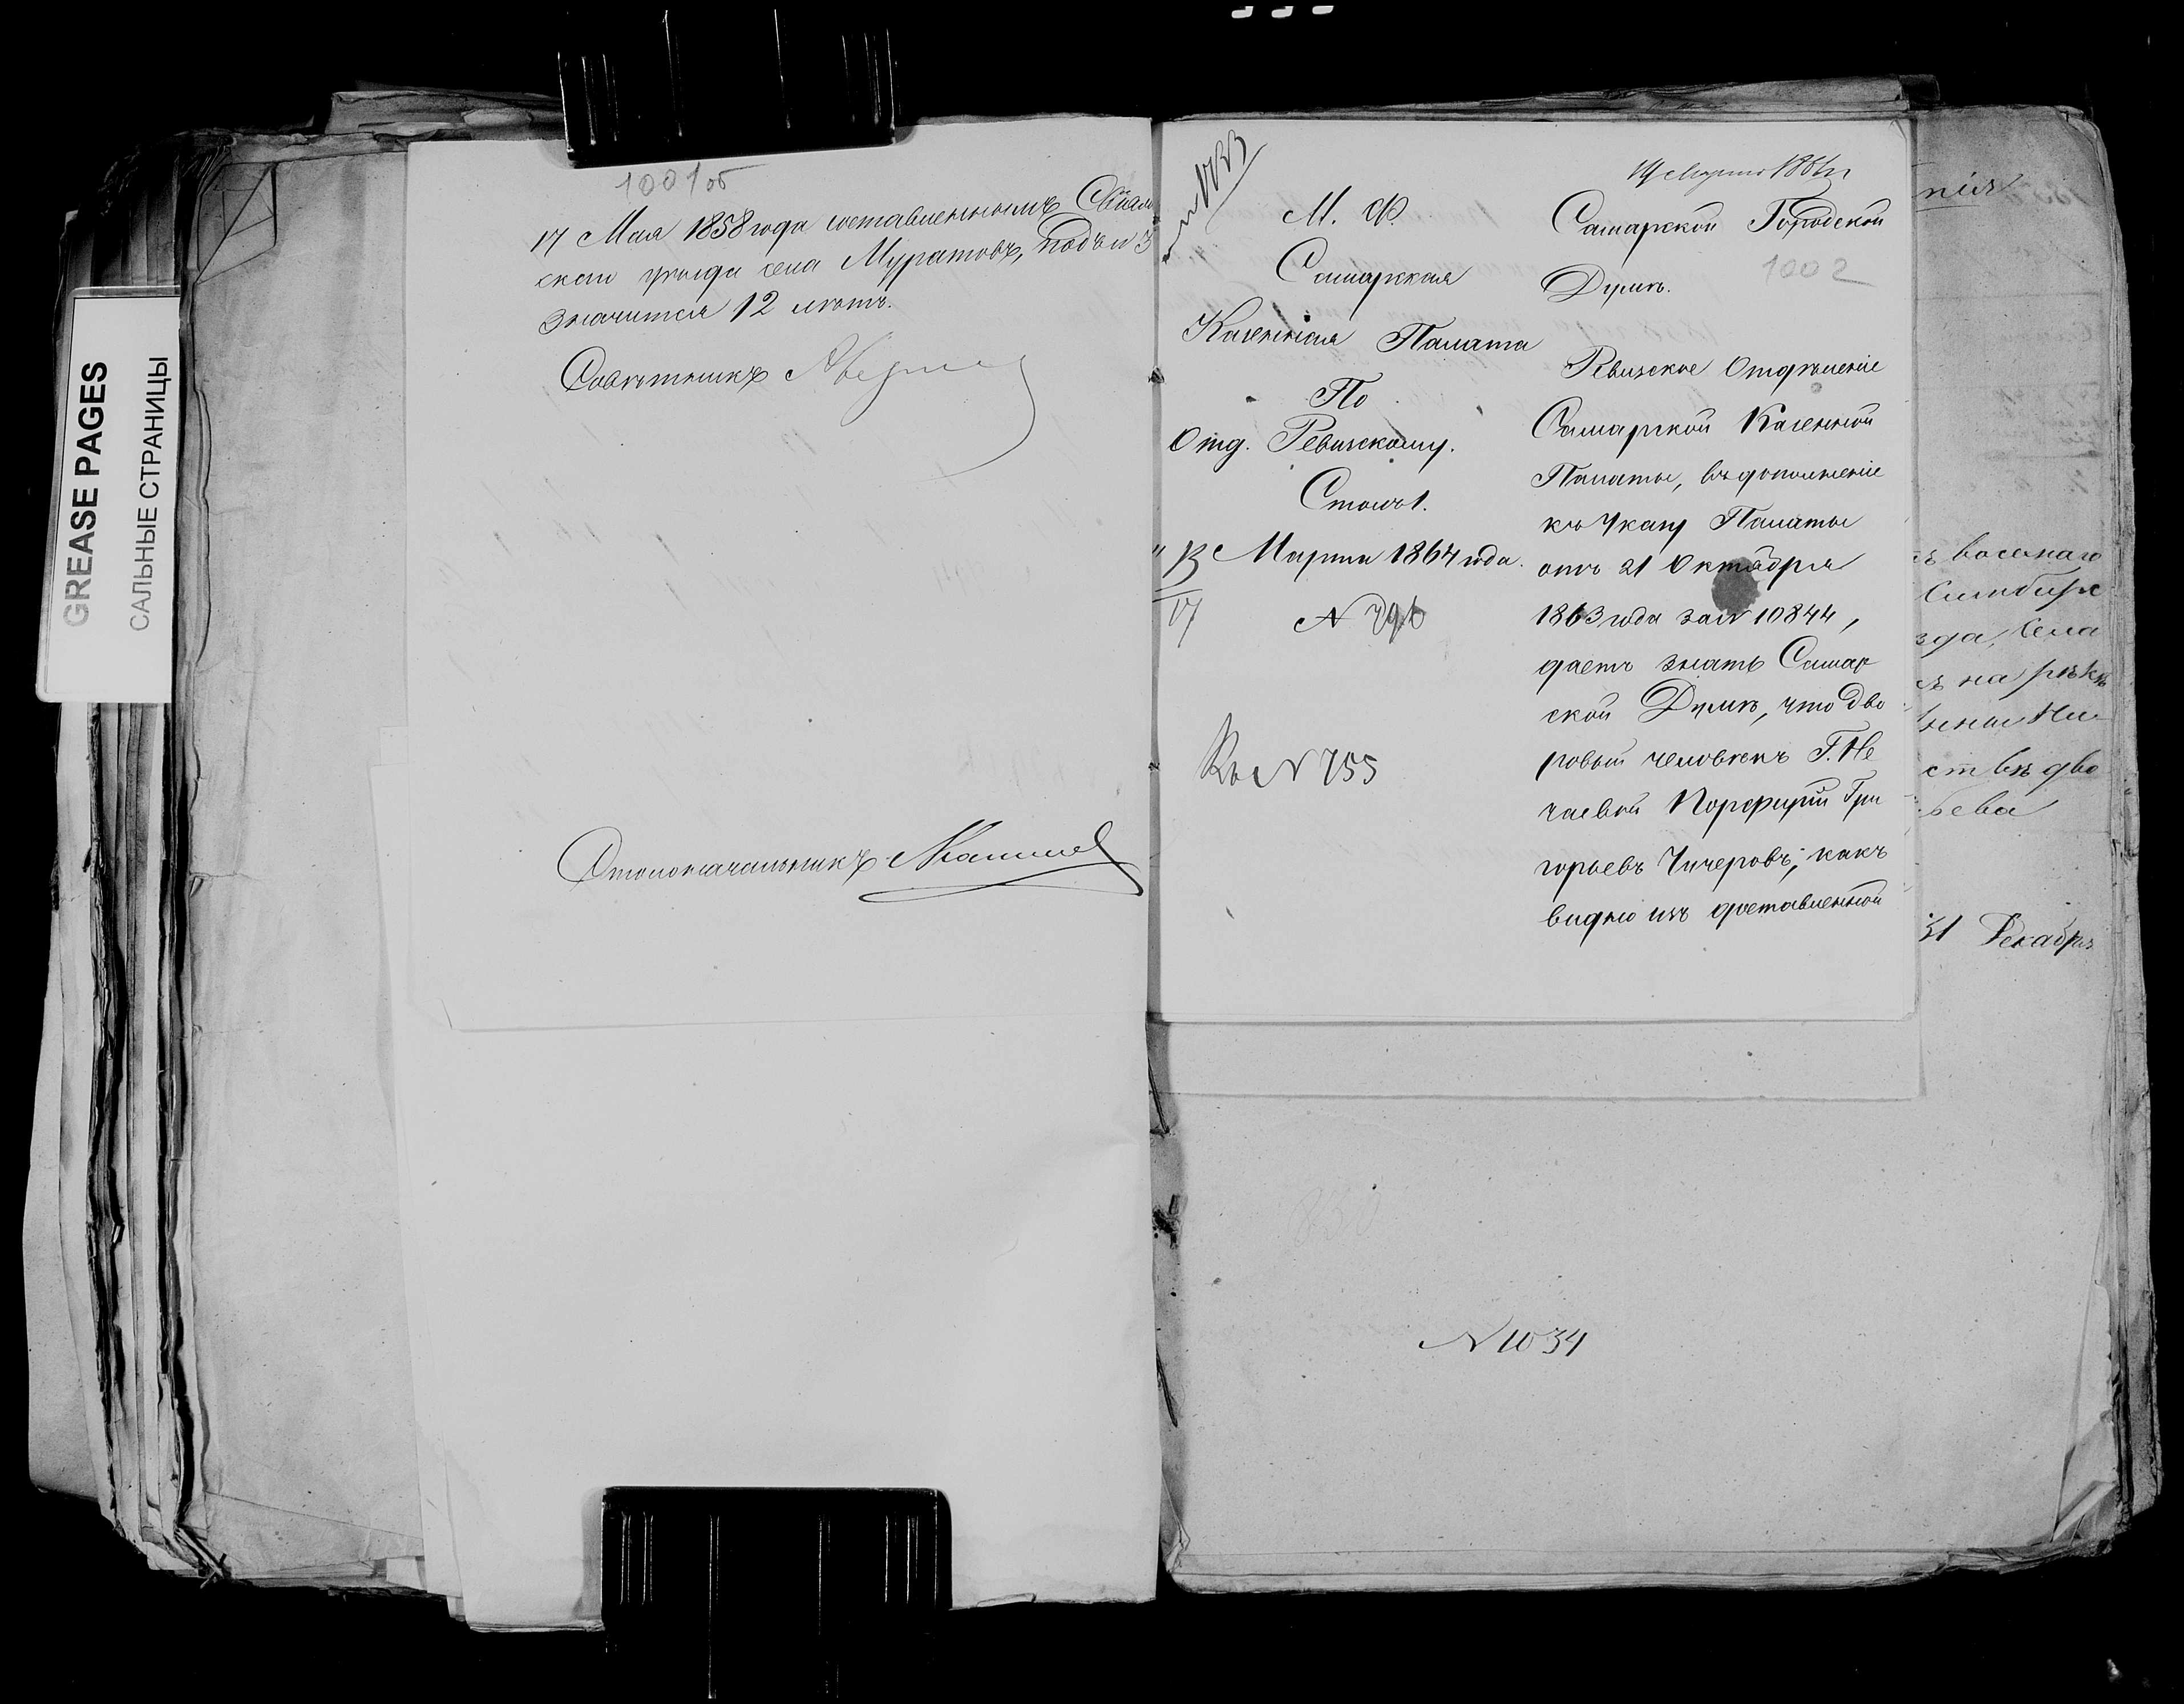 GREASE PAGES
САЛЬНЫЕ СТРАНИЦЫ
1001об
17 Мая 1858 года составленнымъ Свіяж
скаго уѣзда села Муратовъ, подъ № 3
значится 12 лѣтъ.
Совѣтникъ
Столоначальникъ
19 Марта 1864 г
1002
М. Ф.
Самарская
Казенная Палата
По
Отд. Ревизскому.
Столъ 1.
" 13 Марта 1864 года.
17
N 796
Къ N 755
Самарской Городской
Думѣ.
Ревизское Отдѣленіе
Самарской Казенной
Палаты, въ дополненіе
къ Указу Палаты
отъ 21 Октября
1863 года за N 10844,
даетъ знать Самар
ской Думѣ, что дво
ровый человѣкъ Г. Не
чаевой Порфирій Гри
горьевъ Чичеровъ, какъ
видно изъ доставленной
нія
восьмаго
Симбирс
зда, Села
на рѣкѣ
ст въ дво
ьева
31 Декабря
N 1034